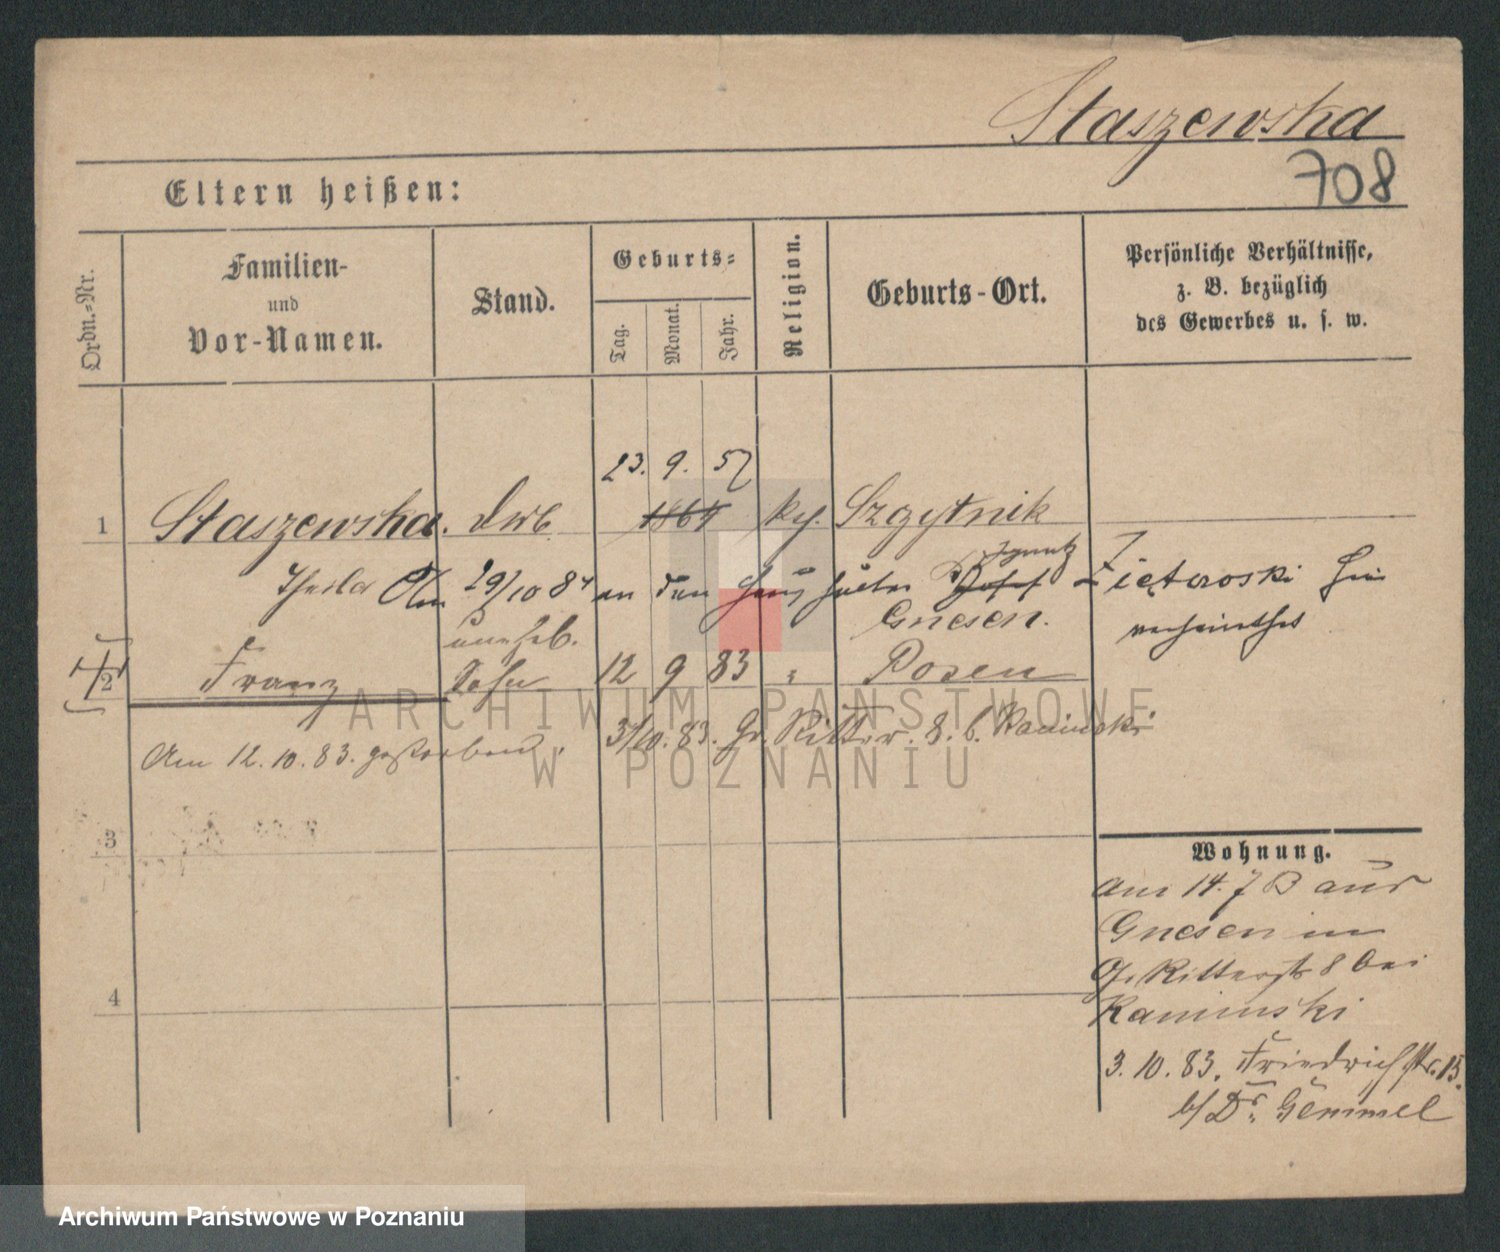 Staszewska
708
Eltern heißen:
Ordn.-Nr.
Familien-
und
Vor-Namen.
Stand.
Geburts-
Tag.
Monat.
Jahr.
Religion.
Geburts-Ort.
Persönliche Verhältnisse,
z. B. bezüglich
des Gewerbes u. s. w.
23. 9. 57
1 Staszewska. 1864 Szgytnik
Am 29/10 84 an den Ignatz
Gnesen.
verheirathet
unehel.
2 Franz Sohn 12 9 83 " Posen
Am 12.10.83. gestorben.
3/10.83. Gr. Ritterstr. 8. b. Kaminski
ARCHIWUM PAŃSTWOWE
W POZNANIU
3
4
Wohnung.
Am 14.7 83 aus
Gnesen in
Gr. Ritterstr 8 bei
Kaminski
3.10.83. Friedrichstr. 15.
b/ Dr. Gemmel
Archiwum Państwowe w Poznaniu